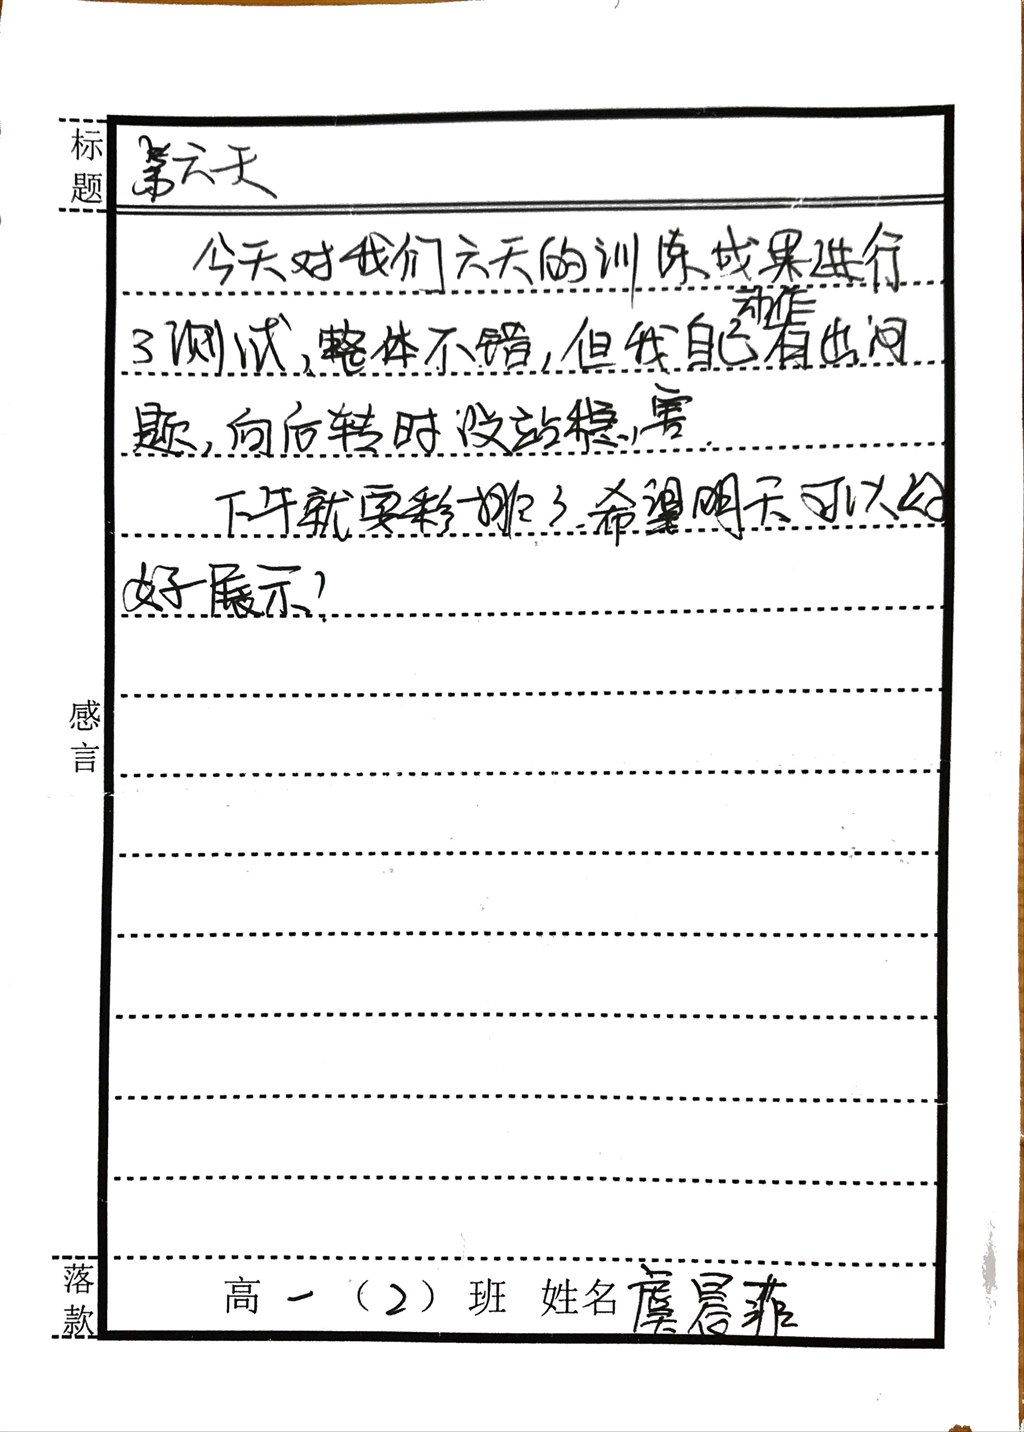 标题
第六天
今天对我们六天的训练成果进行
了测试,整体不错,但我自己动作有出问
题,向后转时没站稳,害.
下午就要彩排了.希望明天可以好
好展示!
感言
落款
高一(2)班 姓名 虞晨菲